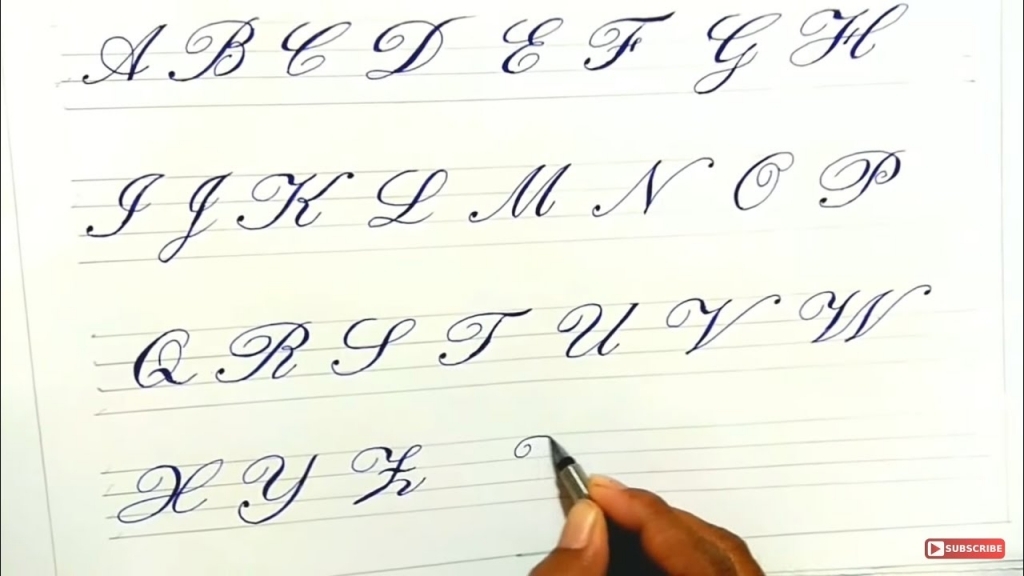 A B C D E F G H
I J K L M N O P
Q R S T U V W
X Y Z
SUBSCRIBE